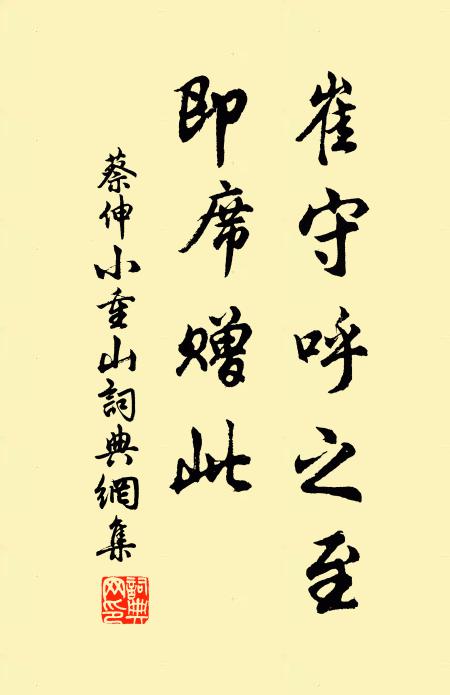 崔守呼之至
即席赠此
蔡伸小重山詞典網集
詞典網印